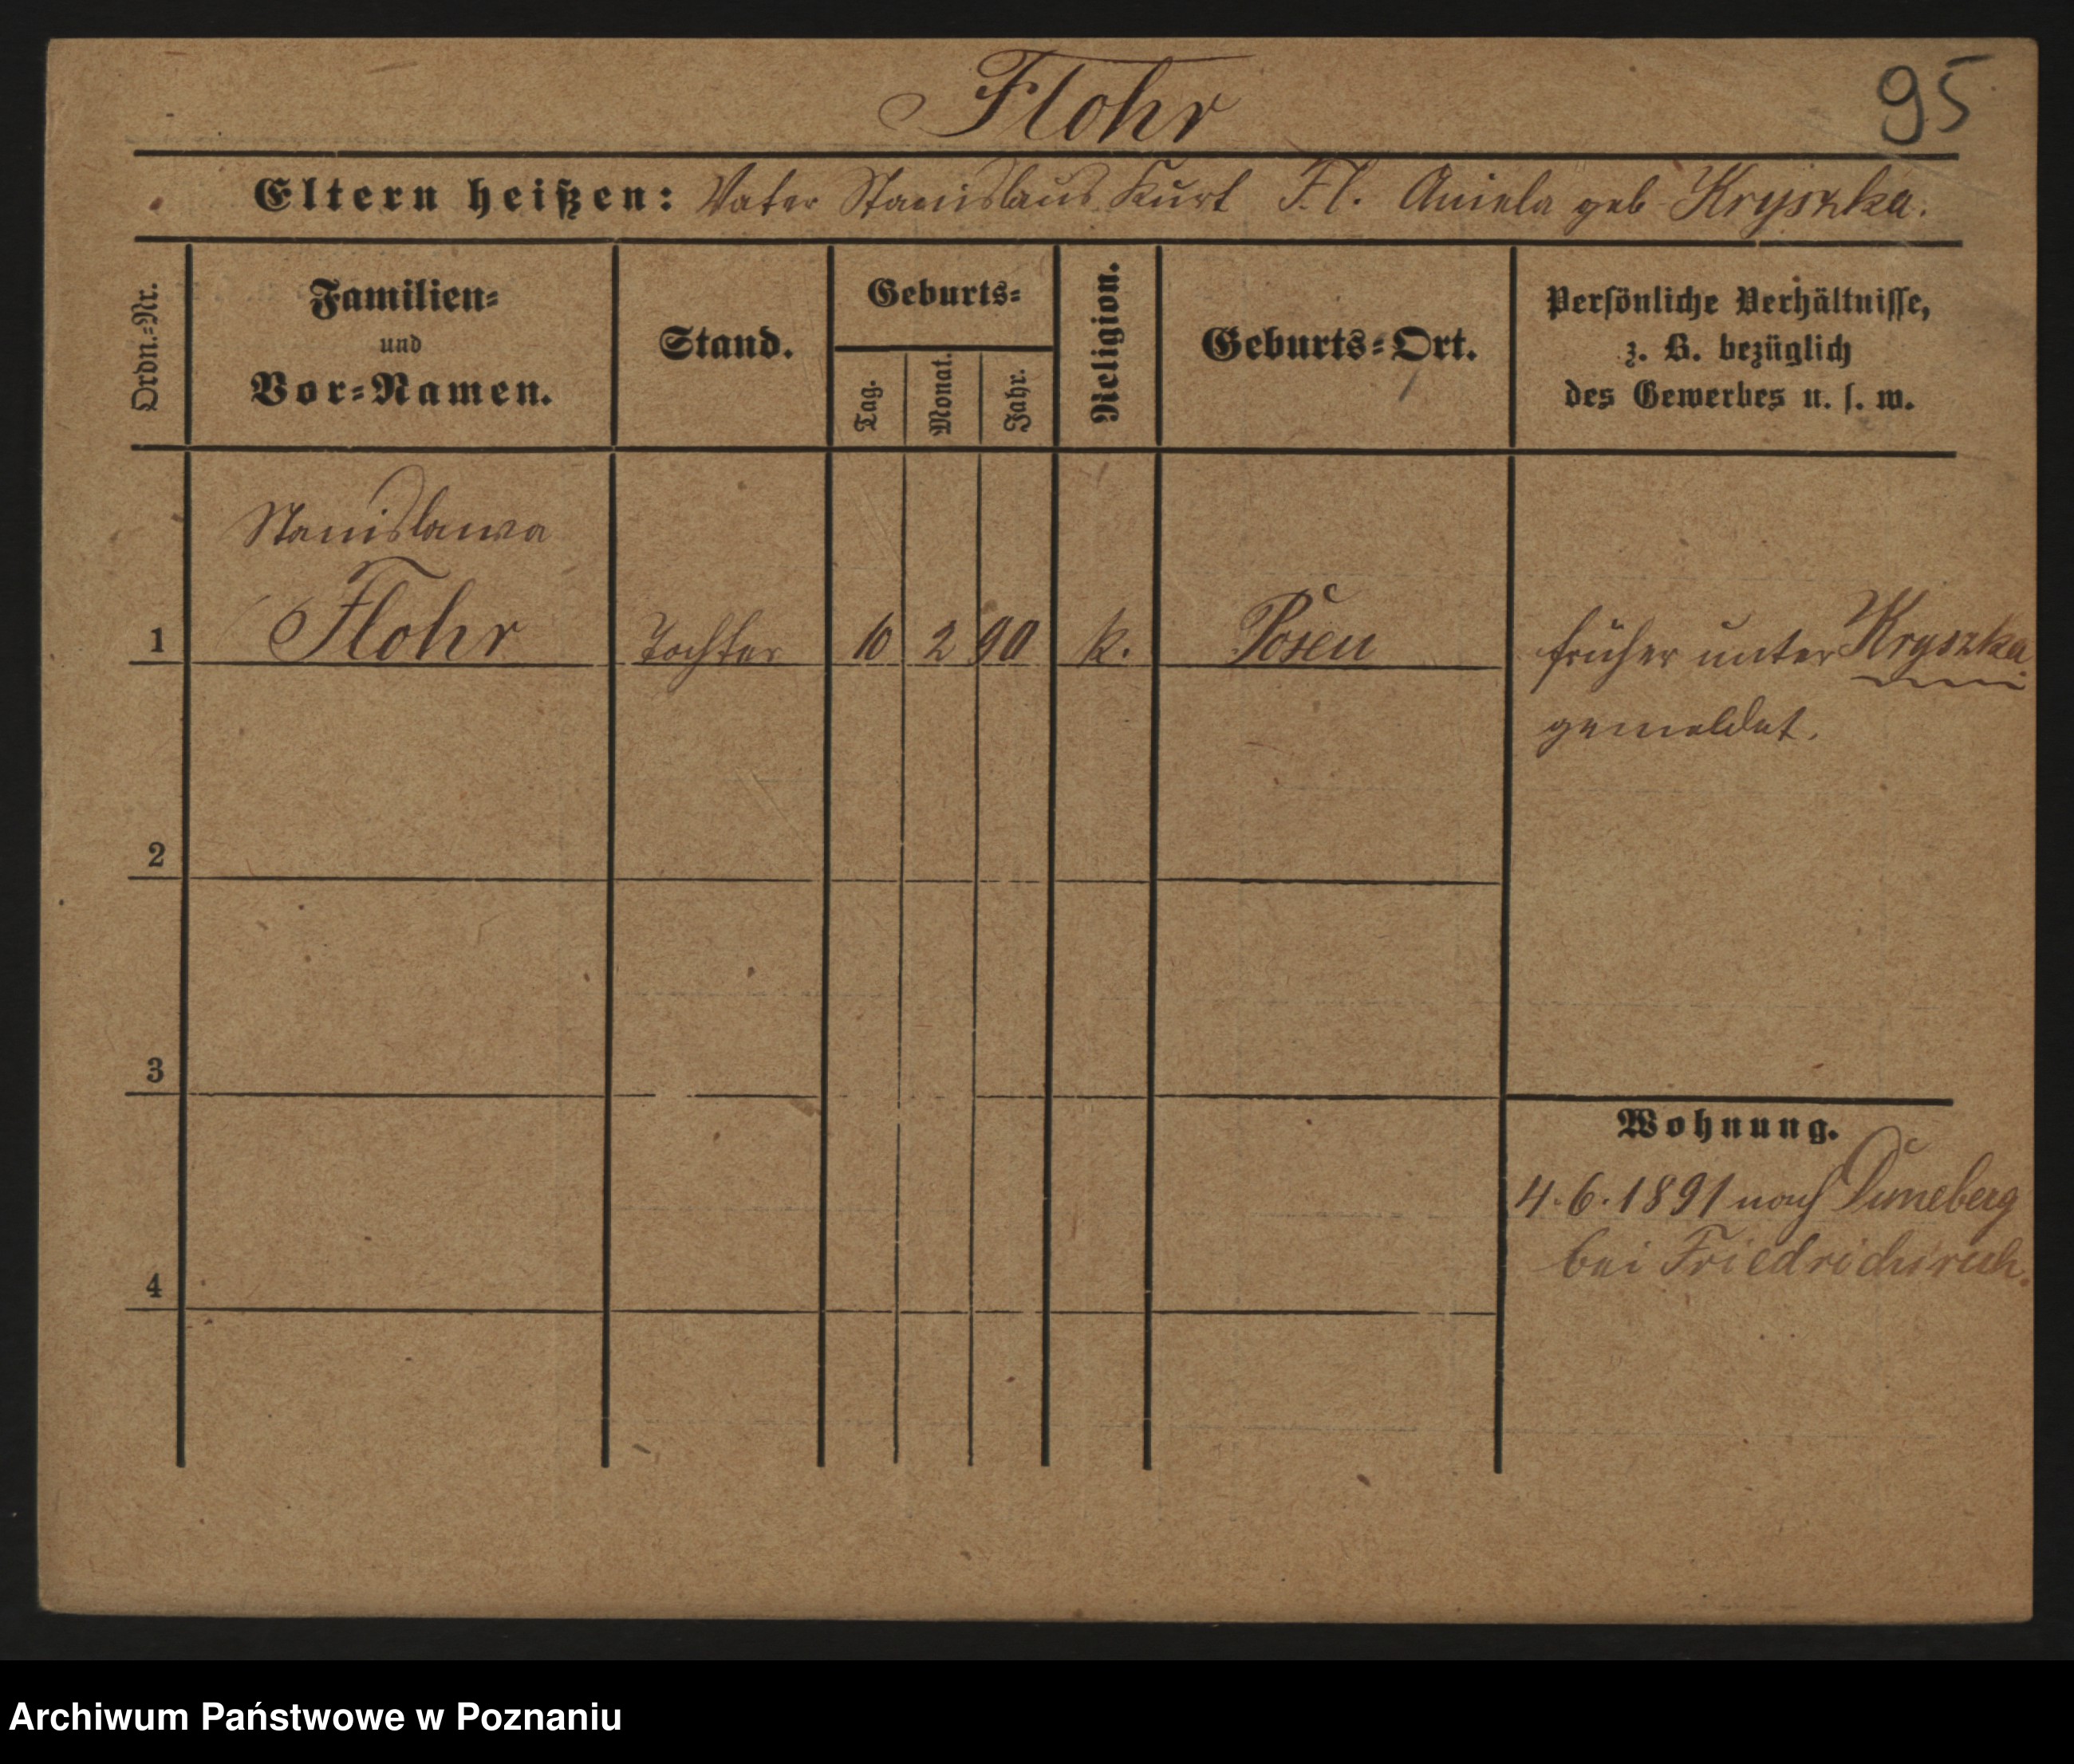 Flohr
95
Eltern heißen: Vater Stanislaus Kurt Fl. Aniela geb Kryszka.
Ordn.-Nr.
Familien-
und
Vor-Namen.
Stand.
Geburts-
Tag.
Monat.
Jahr.
Religion.
Geburts-Ort.
Persönliche Verhältnisse,
z. B. bezüglich
des Gewerbes u. s. w.
Stanislawa
1 Flohr Tochter 10 2 90 k. Posen
früher unter Kryszka
gemeldet.
2
3
Wohnung.
4.6.1891 nach Düneberg
bei Friedrichsruh.
4
Archiwum Państwowe w Poznaniu